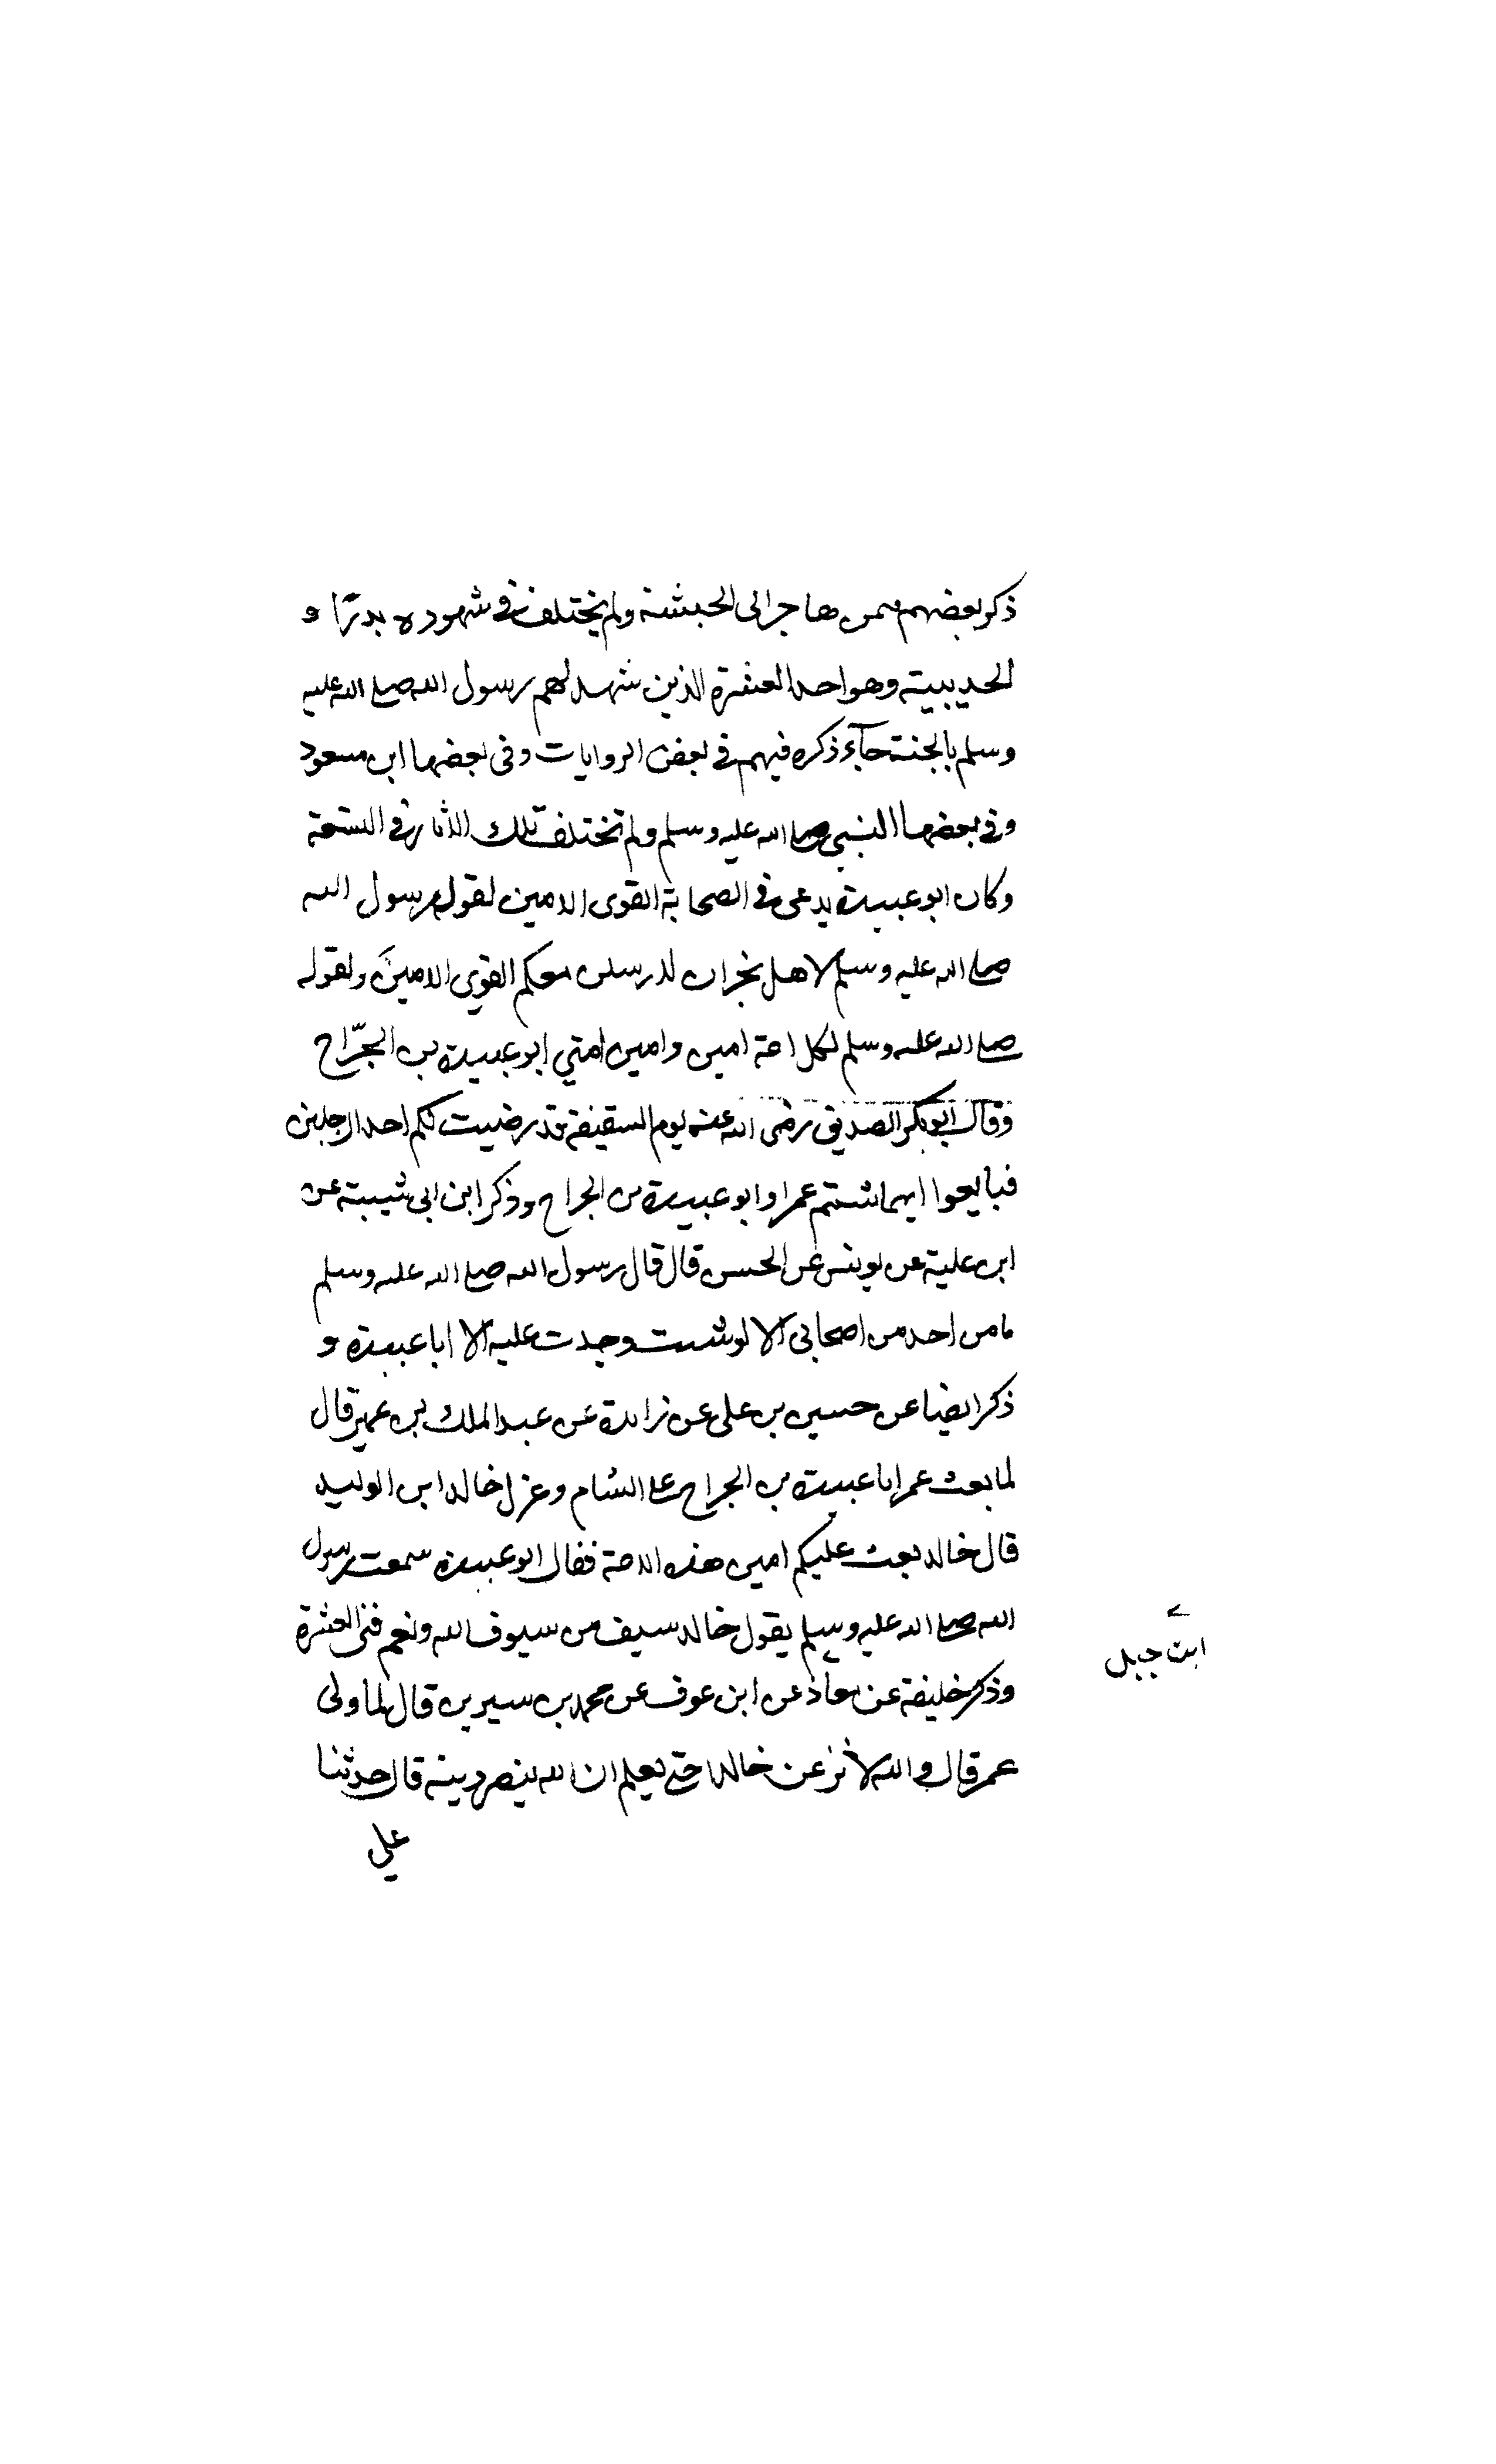 ذكر بعضهم ممن هاجر الى الحبشة ولم يختلف في شهوده بدرًا و
الحديبية وهو احد العشرة الذين شهد لهم رسول الله صلى الله عليه
وسلم بالجنة جآء ذكره فيهم في بعض الروايات وفي بعضها ابن مسعود
وفي بعضها النبي صلى الله عليه وسلم ولم تختلف تلك الآثار في التسعة
وكان ابو عبيدة يدعى في الصحابة القوى الامين لقول رسول الله
صلى الله عليه وسلم لاهل نجران لارسلن معكم القوي الامين ولقوله
صلى الله عليه وسلم لكل امة امين وامين امتي ابو عبيدة بن الجرّاح
وقال ابو بكر الصديق رضى الله عنه يوم السقيفة قد رضيت لكم احد الرجلين
فبايعوا ايهما شئتم عمر او ابو عبيدة بن الجراح وذكر ابن ابى شيبة عن
ابن علية عن يونس عن الحسن قال قال رسول الله صلى الله عليه وسلم
ما من احد من اصحابى الا لو شئت وجدت عليه الا ابا عبيدة و
ذكر ايضا عن حسين بن على عن زائدة عن عبد الملك بن عمير قال
لما بعث عمر ابا عبيدة بن الجراح على الشام وعزل خالد ابن الوليد
قال خالد بعث عليكم امين هذه الامة فقال ابو عبيدة سمعت رسول
الله صلى الله عليه وسلم يقول خالد سيف من سيوف الله ونعم فتى العشرة
وذكر خليفة عن معاذ عن ابن عوف عن محمد بن سيرين قال لما ولى
عمر قال والله لأنزعن خالدا حتى يعلم ان الله ينصر دينه قال حدثنا
على
ابن جبل